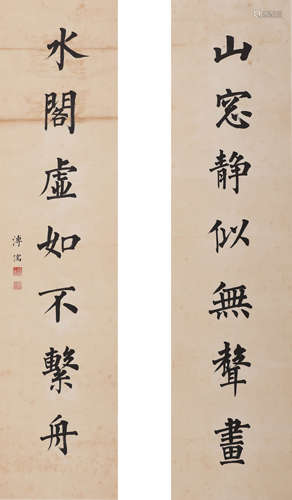 山窓静似無聲畫
水閣虛如不繫舟
溥儒